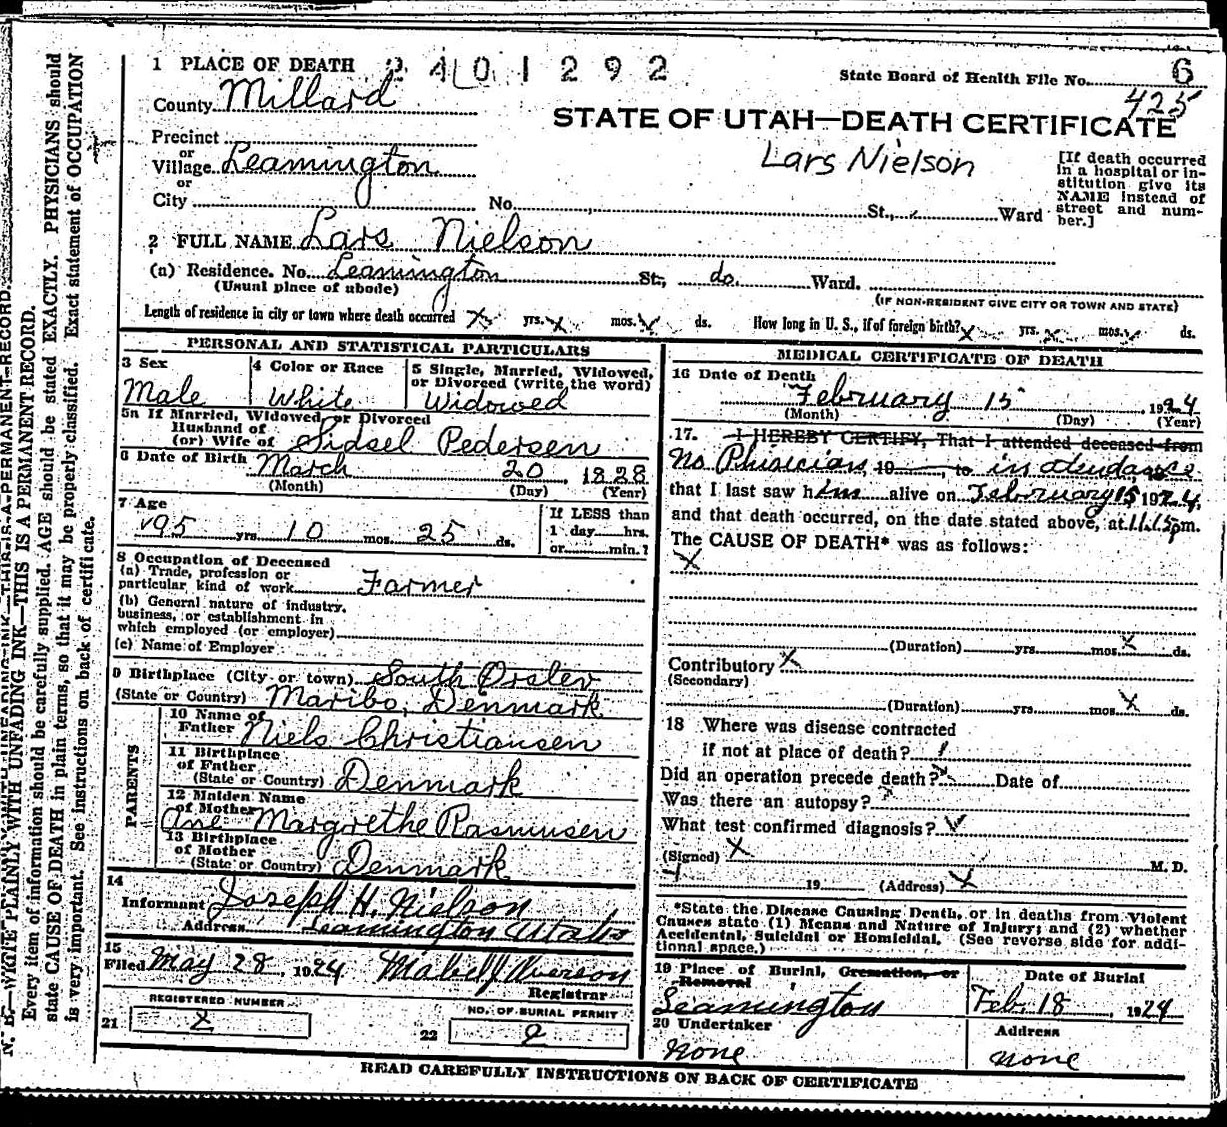 1 PLACE OF DEATH 2 4 0 1 2 9 2
State Board of Health File No. 6
425
County Millard
STATE OF UTAH—DEATH CERTIFICATE
Precinct
or
Village Leamington
or
City No. St., Ward
Lars Nielson
[If death occurred
in a hospital or in-
stitution give its
NAME instead of
street and num-
ber.]
2 FULL NAME Lars Nielson
(a) Residence. No. Leamington St., do. Ward.
(Usual place of abode)
(IF NON-RESIDENT GIVE CITY OR TOWN AND STATE)
Length of residence in city or town where death occurred X yrs. X mos. X ds. How long in U. S., if of foreign birth? X yrs. X mos. X ds.
PERSONAL AND STATISTICAL PARTICULARS
3 Sex
Male
4 Color or Race
White
5 Single, Married, Widowed,
or Divorced (write the word)
Widowed
5a If Married, Widowed or Divorced
Husband of
(or) Wife of Sidsel Pedersen
6 Date of Birth March 20, 1828
(Month) (Day) (Year)
7 Age
95 yrs. 10 mos. 25 ds.
If LESS than
1 day hrs.
or min.?
8 Occupation of Deceased
(a) Trade, profession or
particular kind of work Farmer
(b) General nature of industry,
business, or establishment in
which employed (or employer)
(c) Name of Employer
9 Birthplace (City or town) South Orslev
(State or Country) Maribo, Denmark
PARENTS
10 Name of
Father Niels Christiansen
11 Birthplace
of Father
(State or Country) Denmark
12 Maiden Name
of Mother
Ane Margrethe Rasmussen
13 Birthplace
of Mother
(State or Country) Denmark
14
Informant Joseph H. Nielson
Address Leamington Utah
15
Filed May 28, 1924 Mabel J. Overson
Registrar
REGISTERED NUMBER
21 2
NO. OF BURIAL PERMIT
22 2
MEDICAL CERTIFICATE OF DEATH
16 Date of Death
February 15, 1924
(Month) (Day) (Year)
17. I HEREBY CERTIFY, That I attended deceased from
No Phisician 19 to in atendance
that I last saw him alive on February 15 1924,
and that death occurred, on the date stated above, at 11.15 pm.
The CAUSE OF DEATH* was as follows:
X
(Duration) yrs. mos. X ds.
Contributory X
(Secondary)
(Duration) yrs. mos. X ds.
18 Where was disease contracted
if not at place of death?
Did an operation precede death? Date of
Was there an autopsy?
What test confirmed diagnosis?
(Signed) X M. D.
19 (Address) X
*State the Disease Causing Death, or in deaths from Violent
Causes state (1) Means and Nature of Injury; and (2) whether
Accidental, Suicidal or Homicidal. (See reverse side for addi-
tional space.)
19 Place of Burial, Cremation, or
Removal
Leamington
Date of Burial
Feb. 18, 1924
20 Undertaker
none
Address
none
READ CAREFULLY INSTRUCTIONS ON BACK OF CERTIFICATE
N. B.—WRITE PLAINLY WITH UNFADING INK—THIS IS A PERMANENT RECORD.
Every item of information should be carefully supplied. AGE should be stated EXACTLY. PHYSICIANS should
state CAUSE OF DEATH in plain terms, so that it may be properly classified. Exact statement of OCCUPATION
is very important. See instructions on back of certificate.